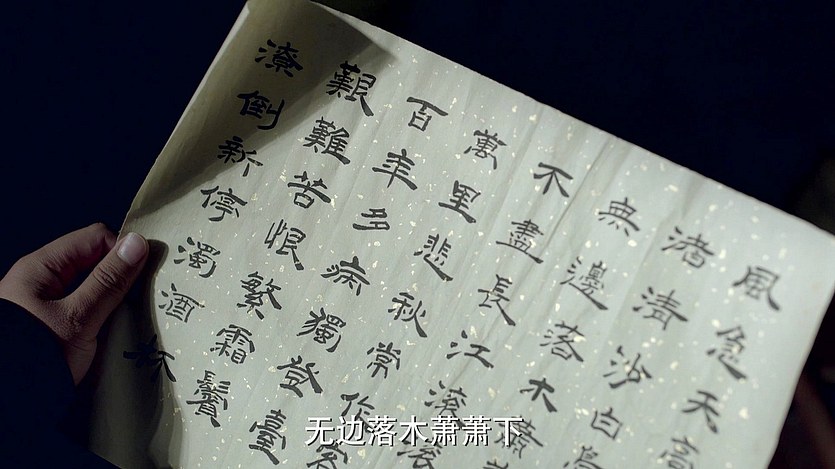 風急天高
渚清沙白鳥
無邊落木蕭
不盡長江滾滾
萬里悲秋常作客
百年多病獨登臺
艱難苦恨繁霜鬢
潦倒新停濁酒杯
无边落木萧萧下